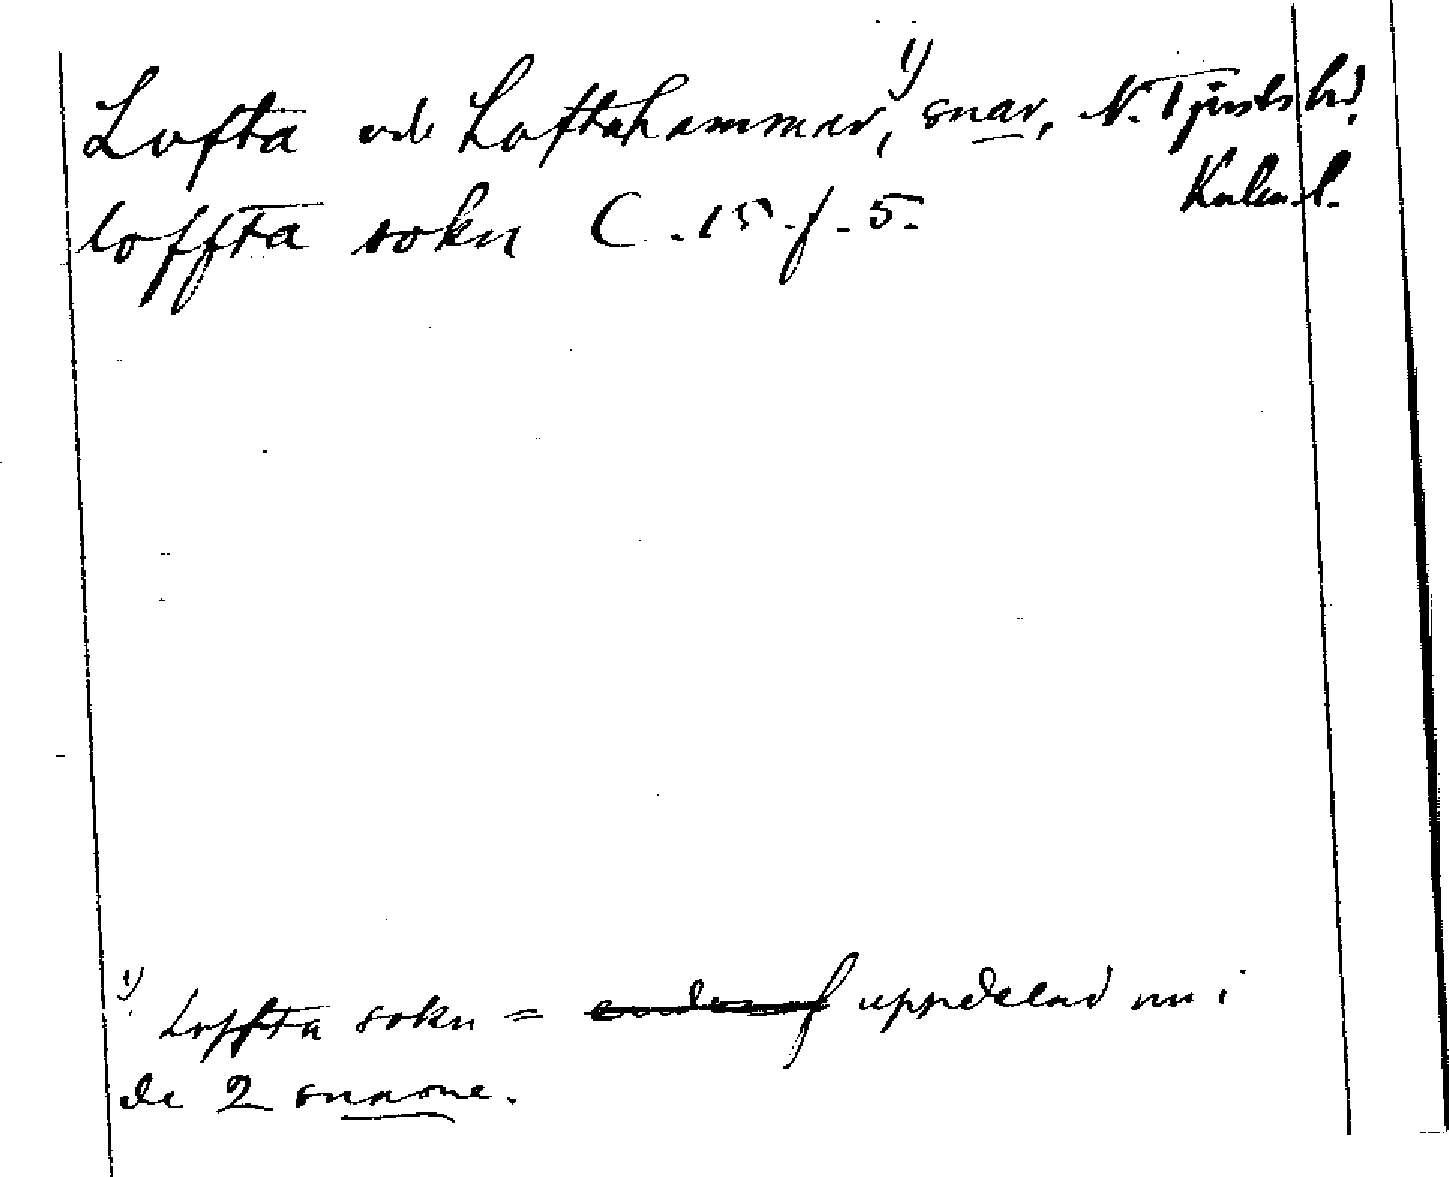 Lofta och Loftahammar,¹⁾ snar, N. Tjusts hd.
Kalm. l.
loffta sokn C. 15. f. 5.
¹⁾ Loffta sokn = uppdelad nu i
de 2 snarne.